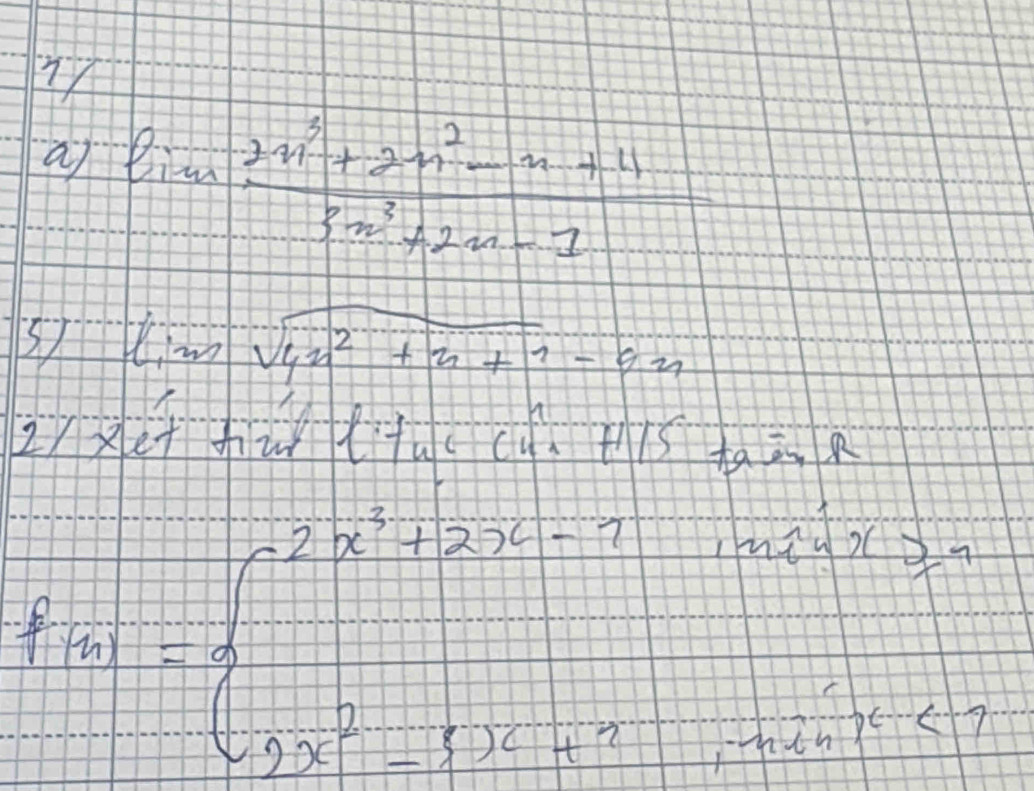 1/
a) lim (2n³ + 2n² - n + 4) / (3n³ + 2n - 1)
b) lim √(4n² + n + 1) - 9n
2/ Xét tính l.tục của H/S trên R
f(n) = { 2x³ + 2x - 1 , nếu x ≥ 1
2x² - 3x + 1 , nếu x < 1